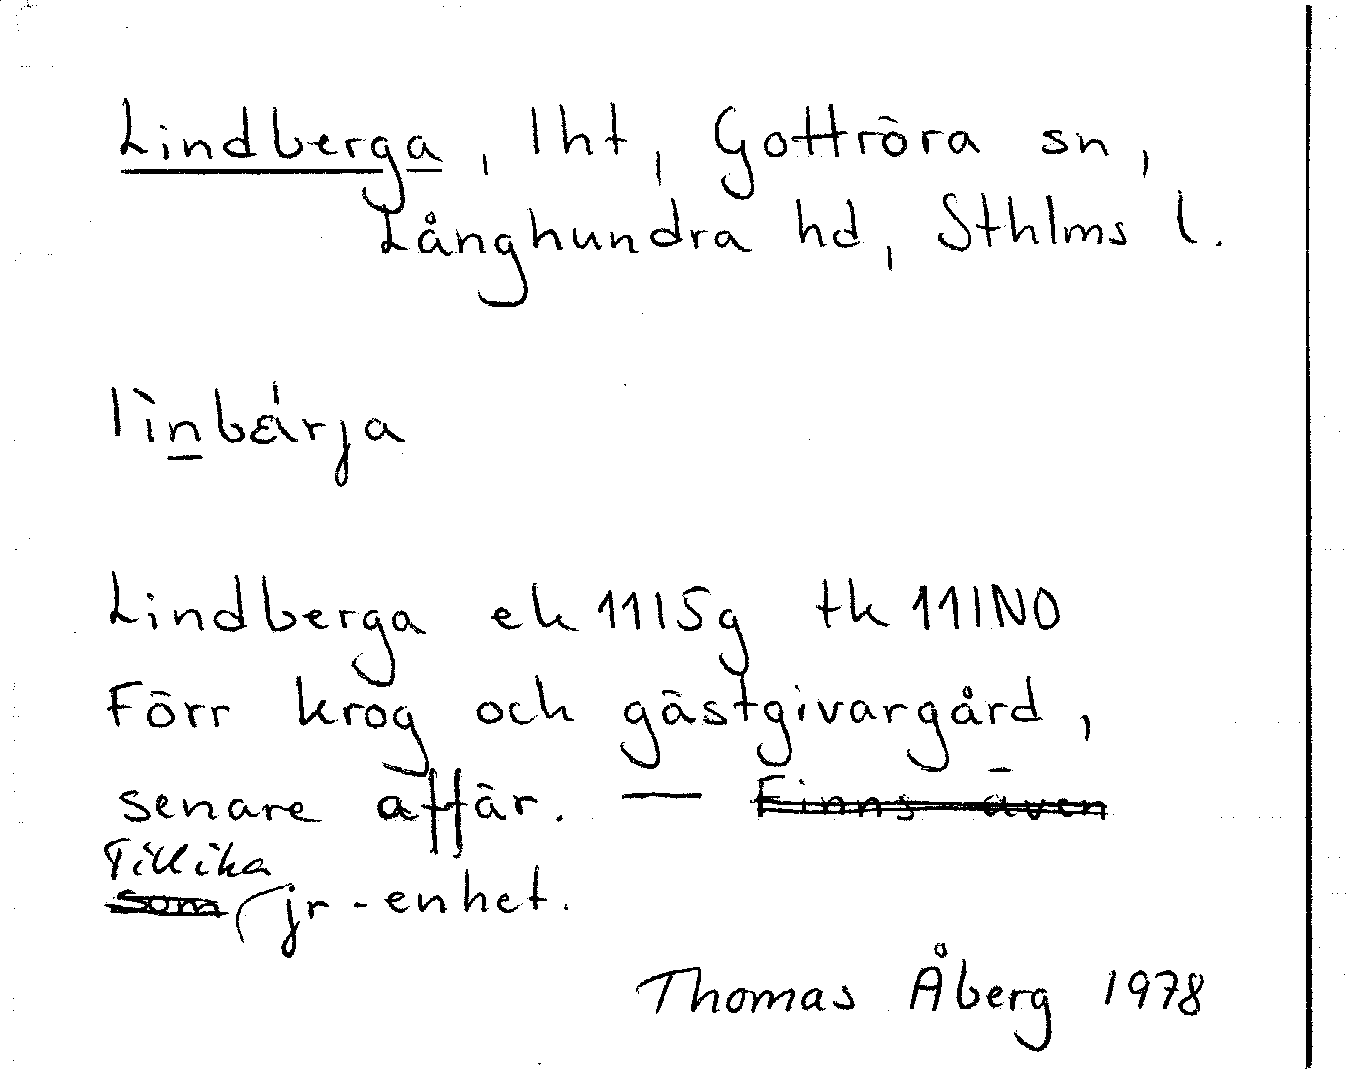 Lindberga, lht, Gottröra sn,
Långhundra hd, Sthlms l.
lìnbǽrja
Lindberga ek 11I5g tk 11INO
Förr krog och gästgivargård,
senare affär. — Finns även
Tillika
som jr-enhet.
Thomas Åberg 1978